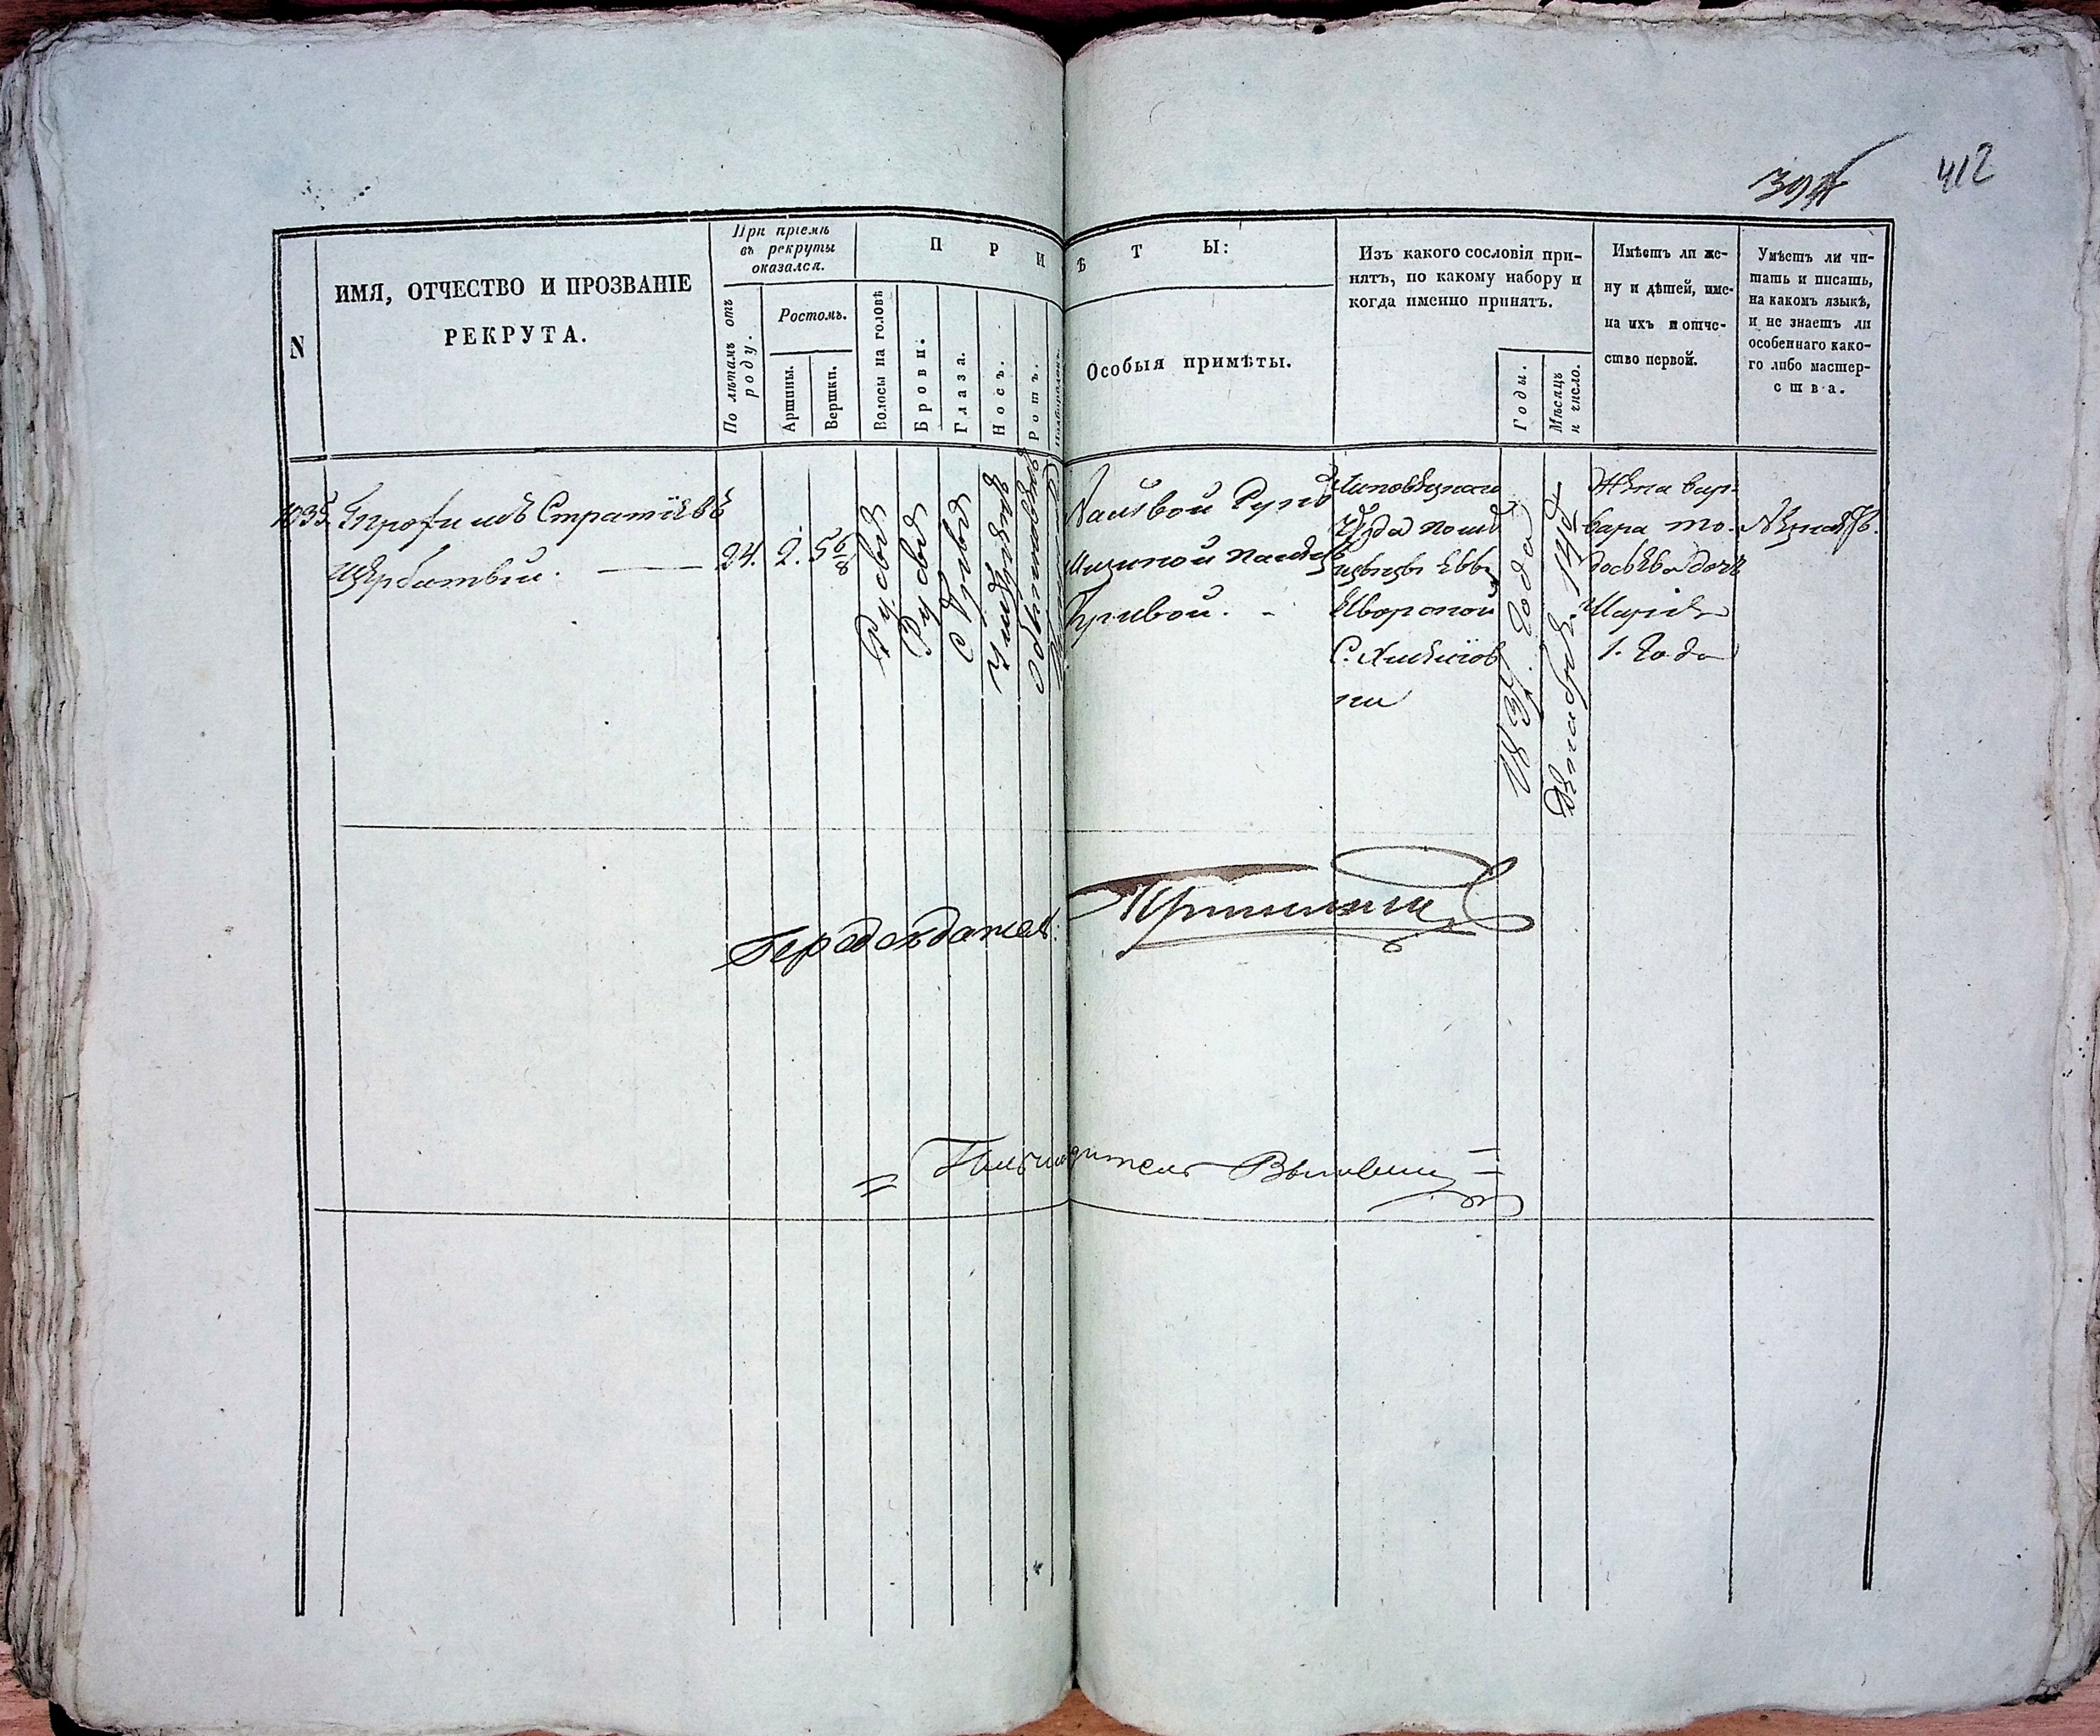 412
N
ИМЯ, ОТЧЕСТВО И ПРОЗВАНІЕ
РЕКРУТА.
При пріемѣ
въ рекруты
оказался.
По лѣтамъ отъ
роду.
Ростомъ.
Аршины.
Вершки.
ПРИ
Волосы на головѣ
Брови.
Глаза.
Носъ.
Ротъ.
Подбородокъ.
ѢТЫ:
Особыя примѣты.
Изъ какого сословія при-
нятъ, по какому набору и
когда именно принятъ.
Годы.
Мѣсяцъ
и число.
Имѣетъ ли же-
ну и дѣтей, име-
на ихъ и отче-
ство первой.
Умѣетъ ли чи-
тать и писать,
на какомъ языкѣ,
и не знаетъ ли
особеннаго како-
го либо мастер-
ства.
1035. Трофимъ Стратіевъ
Щербатый.
24. 2. 5 6/8
Русые
Русые
Сѣрые
умѣренъ
обыкновенъ
Лѣвой руки
мизиной палецъ
Кривой.
Липовецкаго
уѣзда помѣ
щицы Еввы
Яворской
С.
ки
1837. Года
Декабря. 14го
Жена вар-
вара то-
досьева дочь
Марія
1. Года
Незнаетъ.